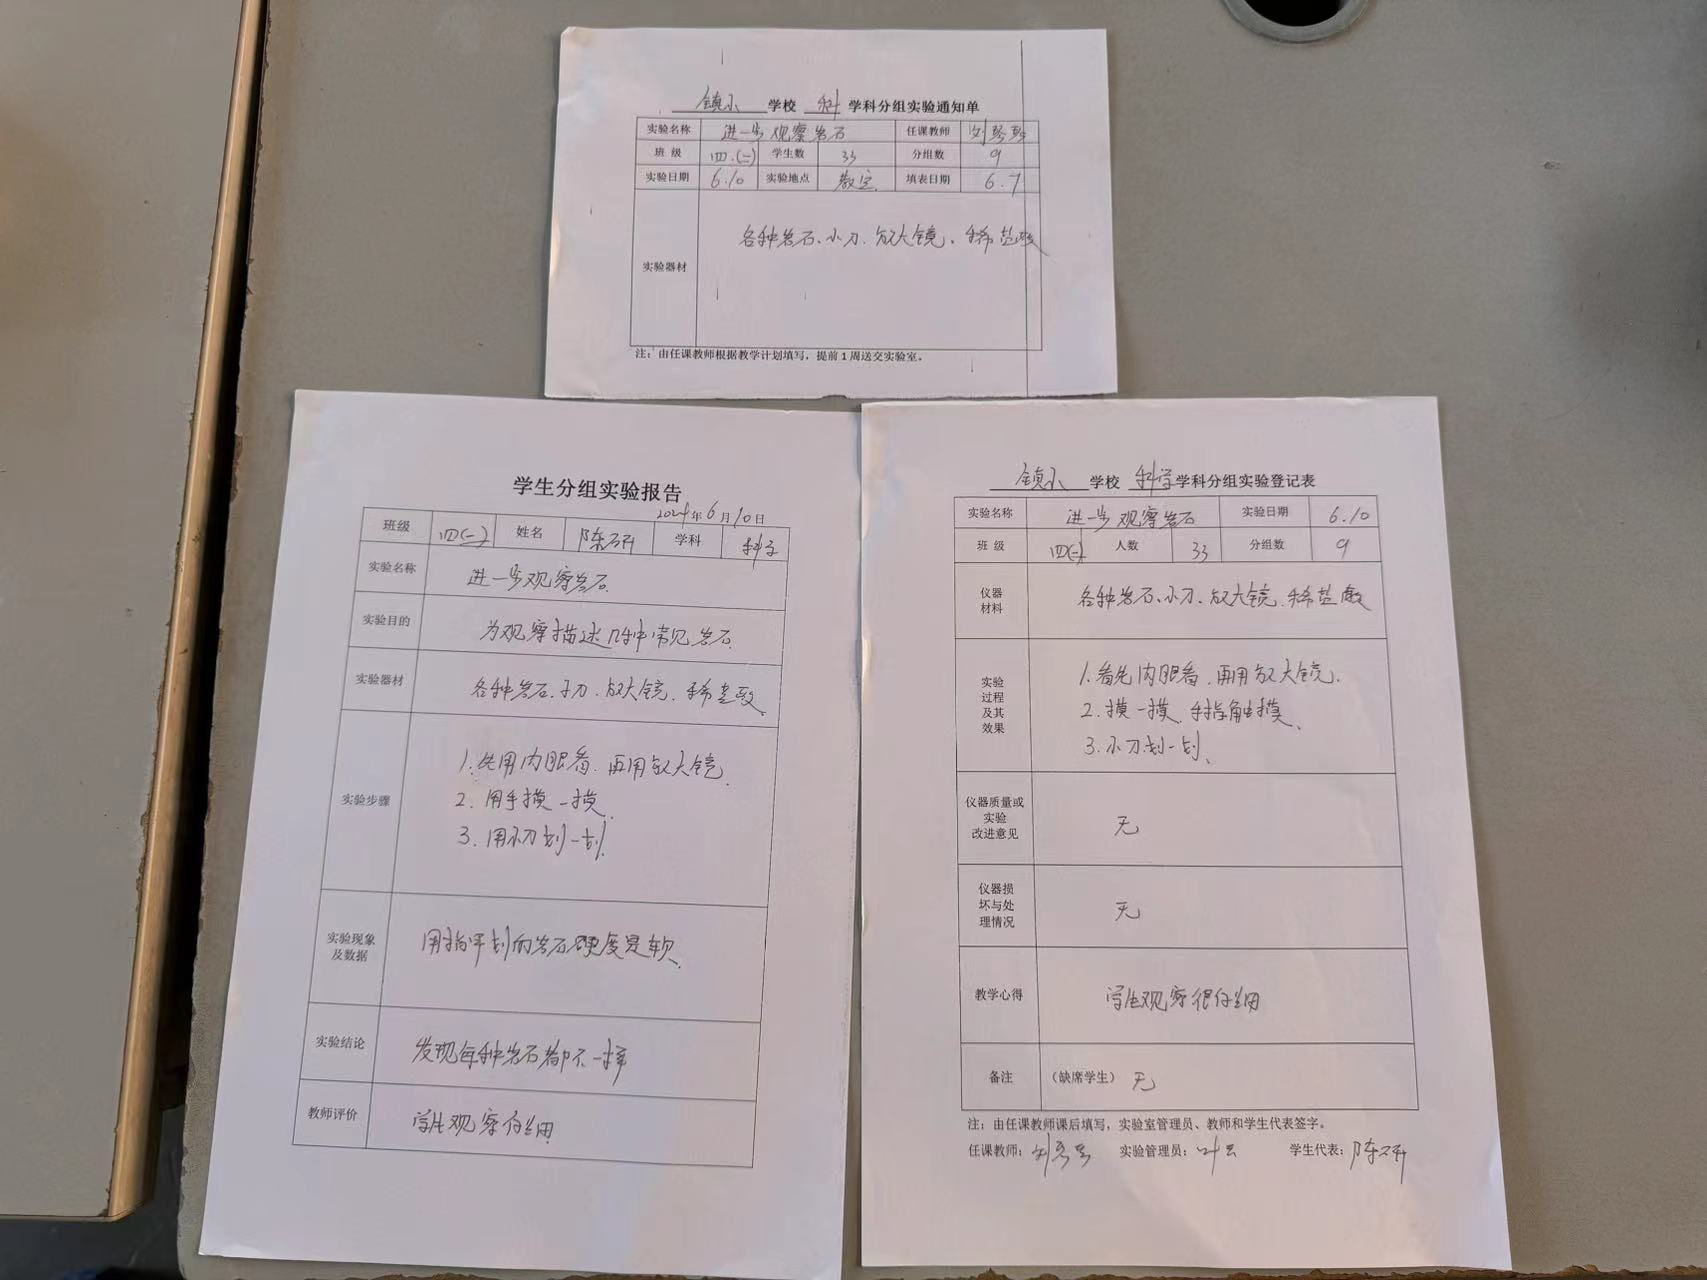 镇小 学校 科 学科分组实验通知单
实验名称 进一步观察岩石 任课教师 刘琴琴
班 级 四.(二) 学生数 33 分组数 9
实验日期 6.10 实验地点 教室 填表日期 6.7
实验器材 各种岩石、小刀、放大镜、稀盐酸
注:由任课教师根据教学计划填写,提前1周送交实验室。
学生分组实验报告
2024年6月10日
班级 四(二) 姓名 陈研 学科 科学
实验名称 进一步观察岩石
实验目的 为观察描述几种常见岩石
实验器材 各种岩石、小刀、放大镜、稀盐酸
实验步骤
1.先用肉眼看、再用放大镜
2.用手摸一摸
3.用小刀划一划
实验现象及数据 用指甲划的岩石硬度是软
实验结论 发现每种岩石都不一样
教师评价 学生观察仔细
镇小 学校 科学学科分组实验登记表
实验名称 进一步观察岩石 实验日期 6.10
班 级 四(二) 人数 33 分组数 9
仪器材料 各种岩石、小刀、放大镜、稀盐酸
实验过程及其效果
1.看先肉眼看、再用放大镜、
2.摸一摸、手指触摸、
3.小刀划一划、
仪器质量或实验改进意见 无
仪器损坏与处理情况 无
教学心得 学生观察很仔细
备注 (缺席学生) 无
注:由任课教师课后填写,实验室管理员、教师和学生代表签字。
任课教师: 刘琴琴 实验管理员: 叶云 学生代表: 陈研